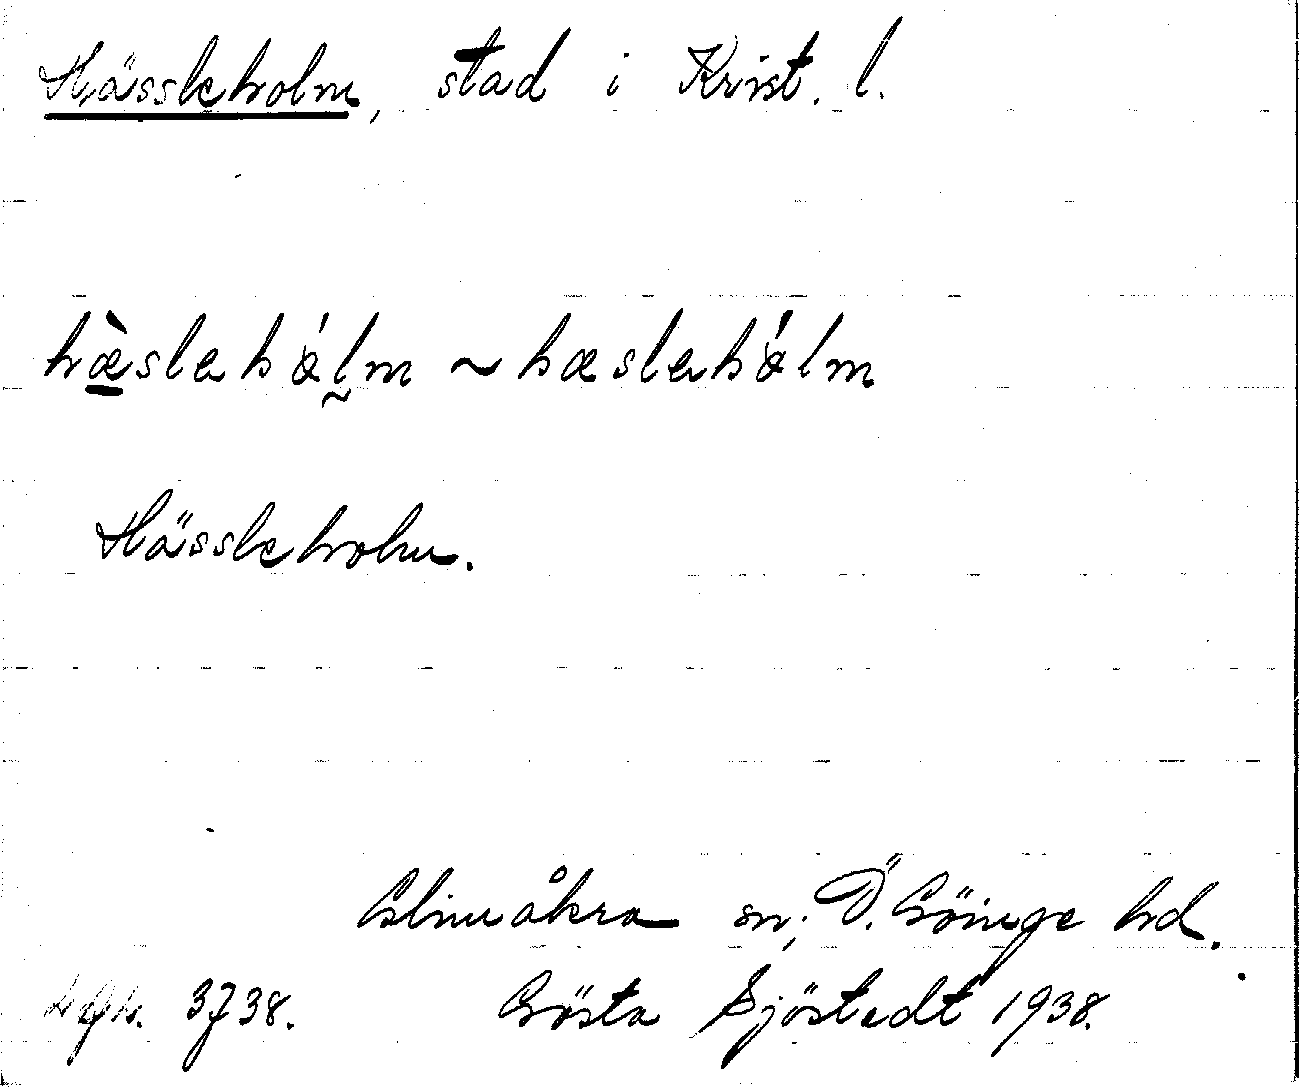 Hässleholm, stad i Krist. l.
hæ̀slehɑ́lm ~ hæslehɑ́lm
Hässleholm.
Glimåkra sn; Ö. Göinge hd.
3738. Gösta Sjöstedt 1938.